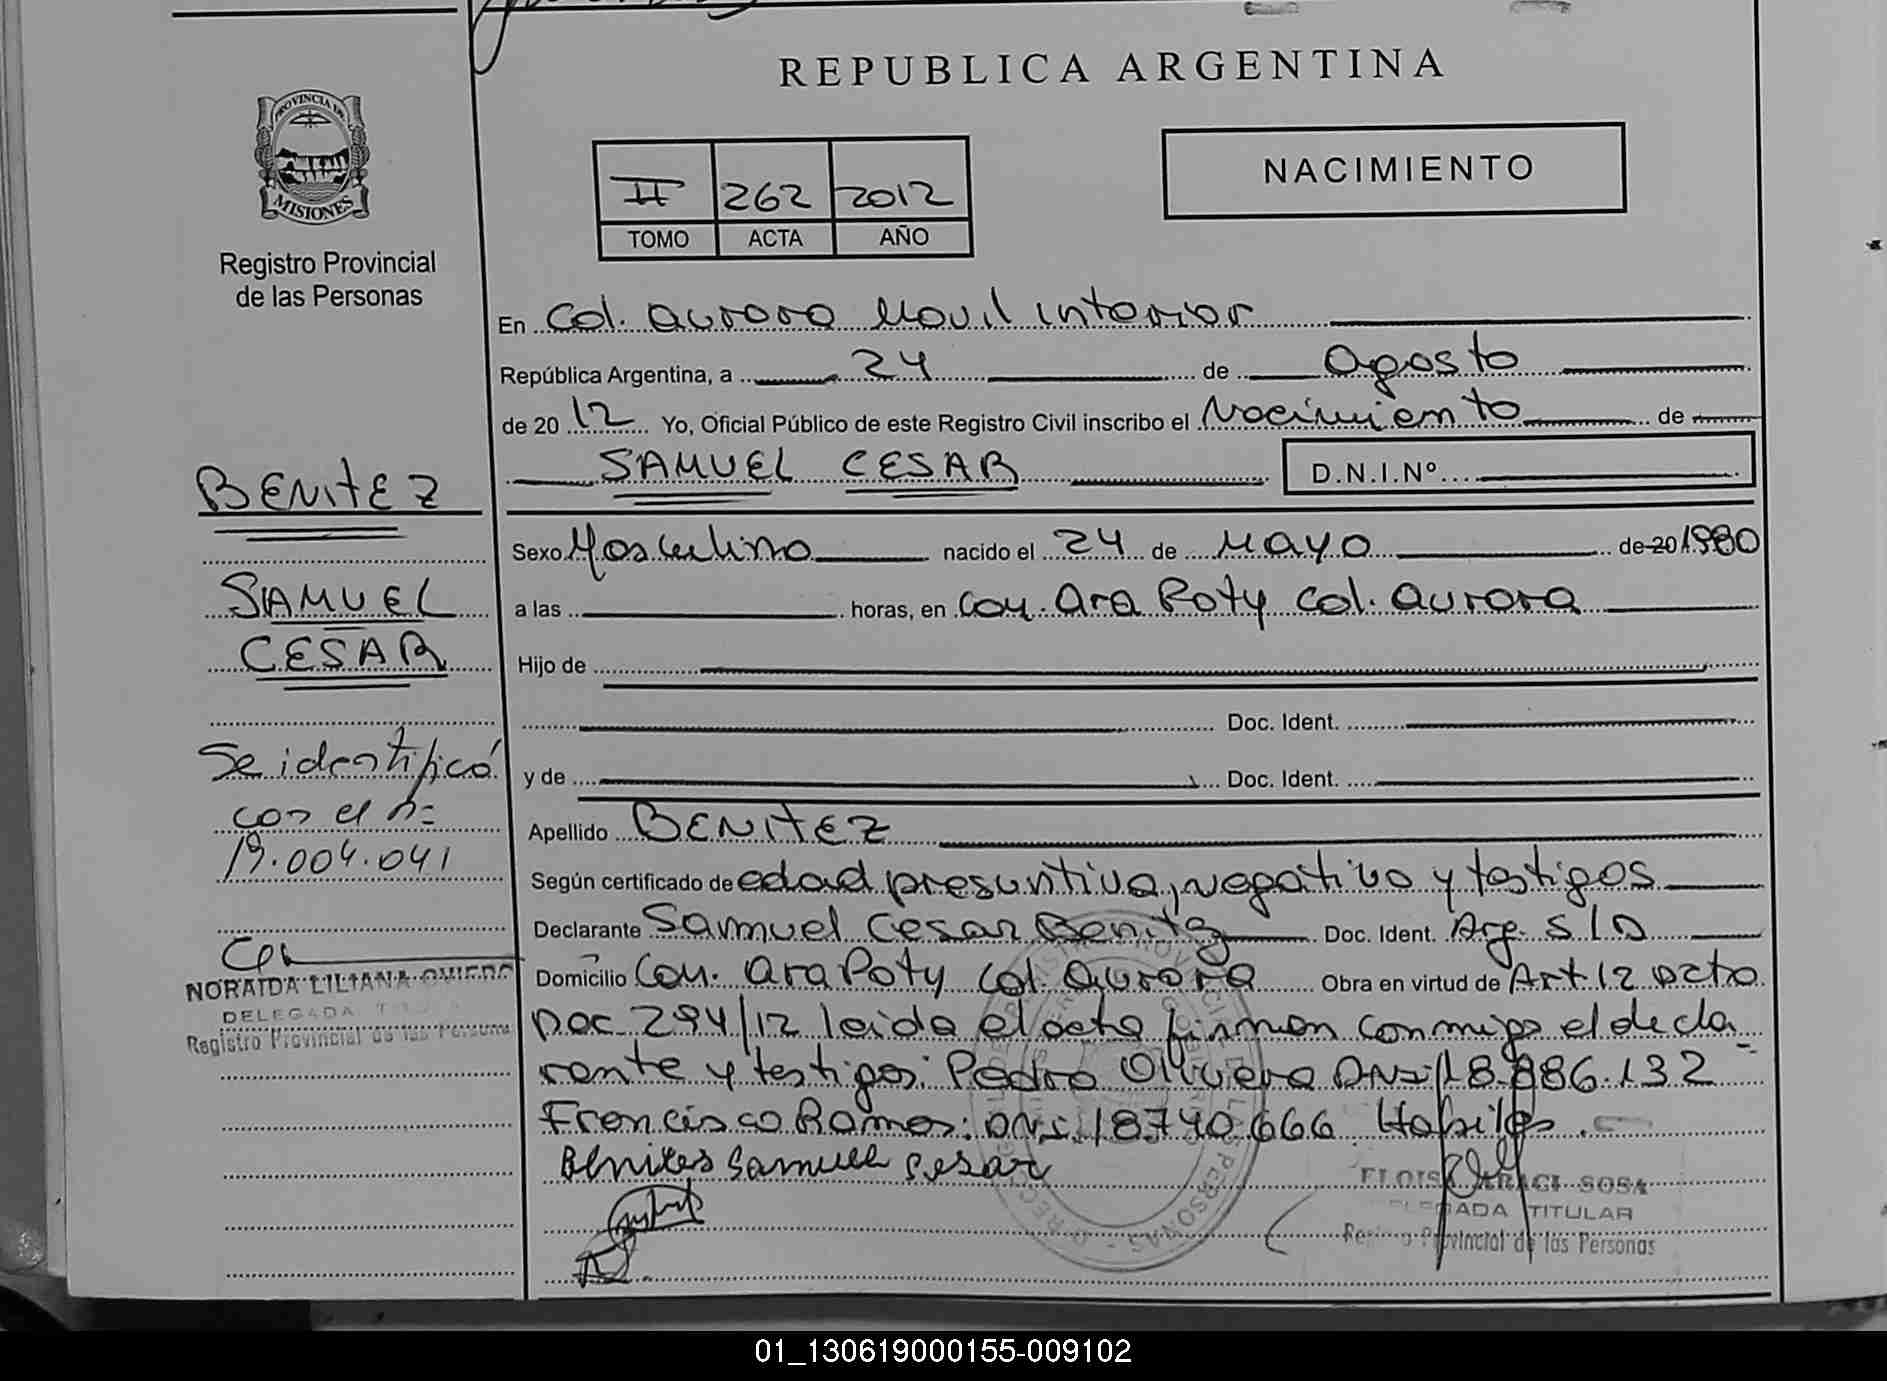 REPUBLICA ARGENTINA
PROVINCIA DE
MISIONES
Registro Provincial
de las Personas
II 262 2012
TOMO ACTA AÑO
NACIMIENTO
En Col. Aurora Movil interior
República Argentina, a 24 de Agosto
de 20 12 Yo, Oficial Público de este Registro Civil inscribo el Nacimiento de
SAMUEL CESAR D.N.I.Nº
Sexo Masculino nacido el 24 de Mayo de 20 1980
a las horas, en Con. Ara Poty Col. Aurora
Hijo de
Doc. Ident.
y de Doc. Ident.
Apellido BENITEZ
Según certificado de edad presuntiva, negativo y testigos
Declarante Samuel Cesar Benitez Doc. Ident. Arg. S/D
Domicilio Con. Ara Poty Col. Aurora Obra en virtud de Art 12 Dcto
Doc 294/12 leida el acta firman conmigo el decla
rante y testigos: Pedro Olivera DNI: 18.886.132
Francisco Ramos: DNI. 18740.666. Habiles.
Benites Samuel Sesar
ELOISA ARACI SOSA
DELEGADA TITULAR
Registro Provincial de las Personas
BENITEZ
SAMUEL
CESAR
Se identificó
con el n=
19.004.041
NORAIDA LILIANA OVIEDO
DELEGADA
Registro Provincial de las Personas
01_130619000155-009102